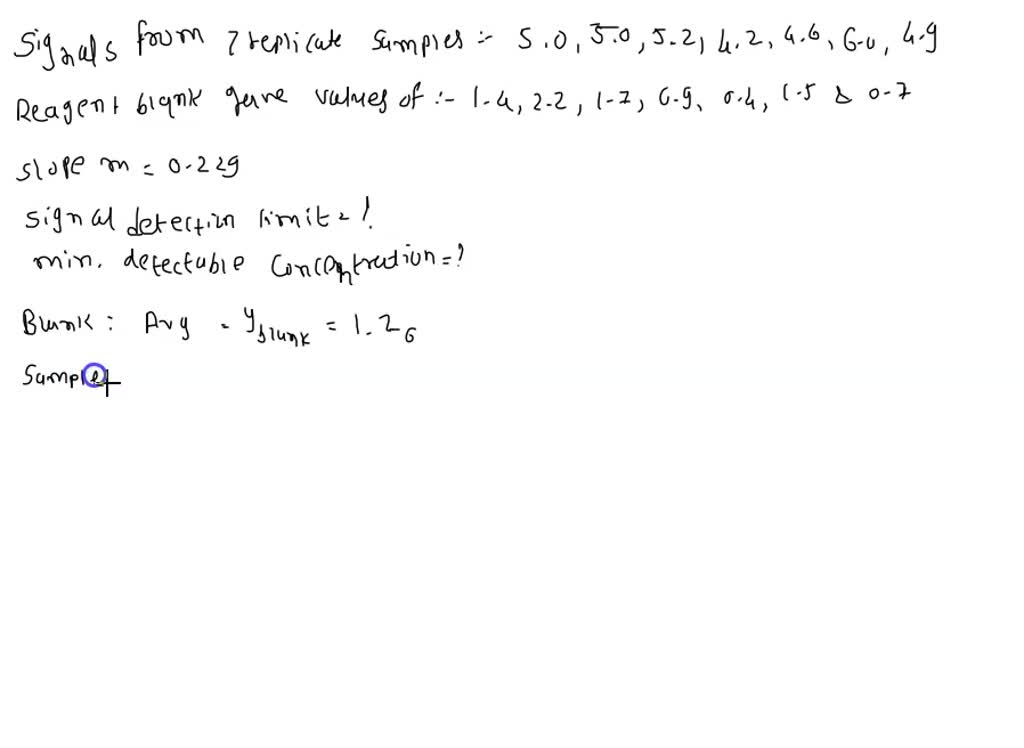 Signals from 7 replicate samples :- 5.0, 5.0, 5.2, 4.2, 4.6, 6.0, 4.9
Reagent blank gave values of :- 1.4, 2.2, 1.7, 0.9, 0.4, 1.5 & 0.7
slope m = 0.229
signal detection limit = ?
min. detectable concentration = ?
Blank : Avg = y blank = 1.26
Sample